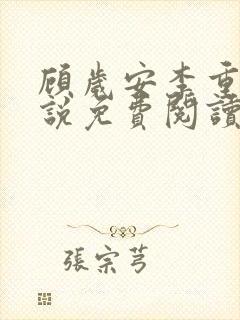 顧歲安李重
說免費閱讀
張宗芎